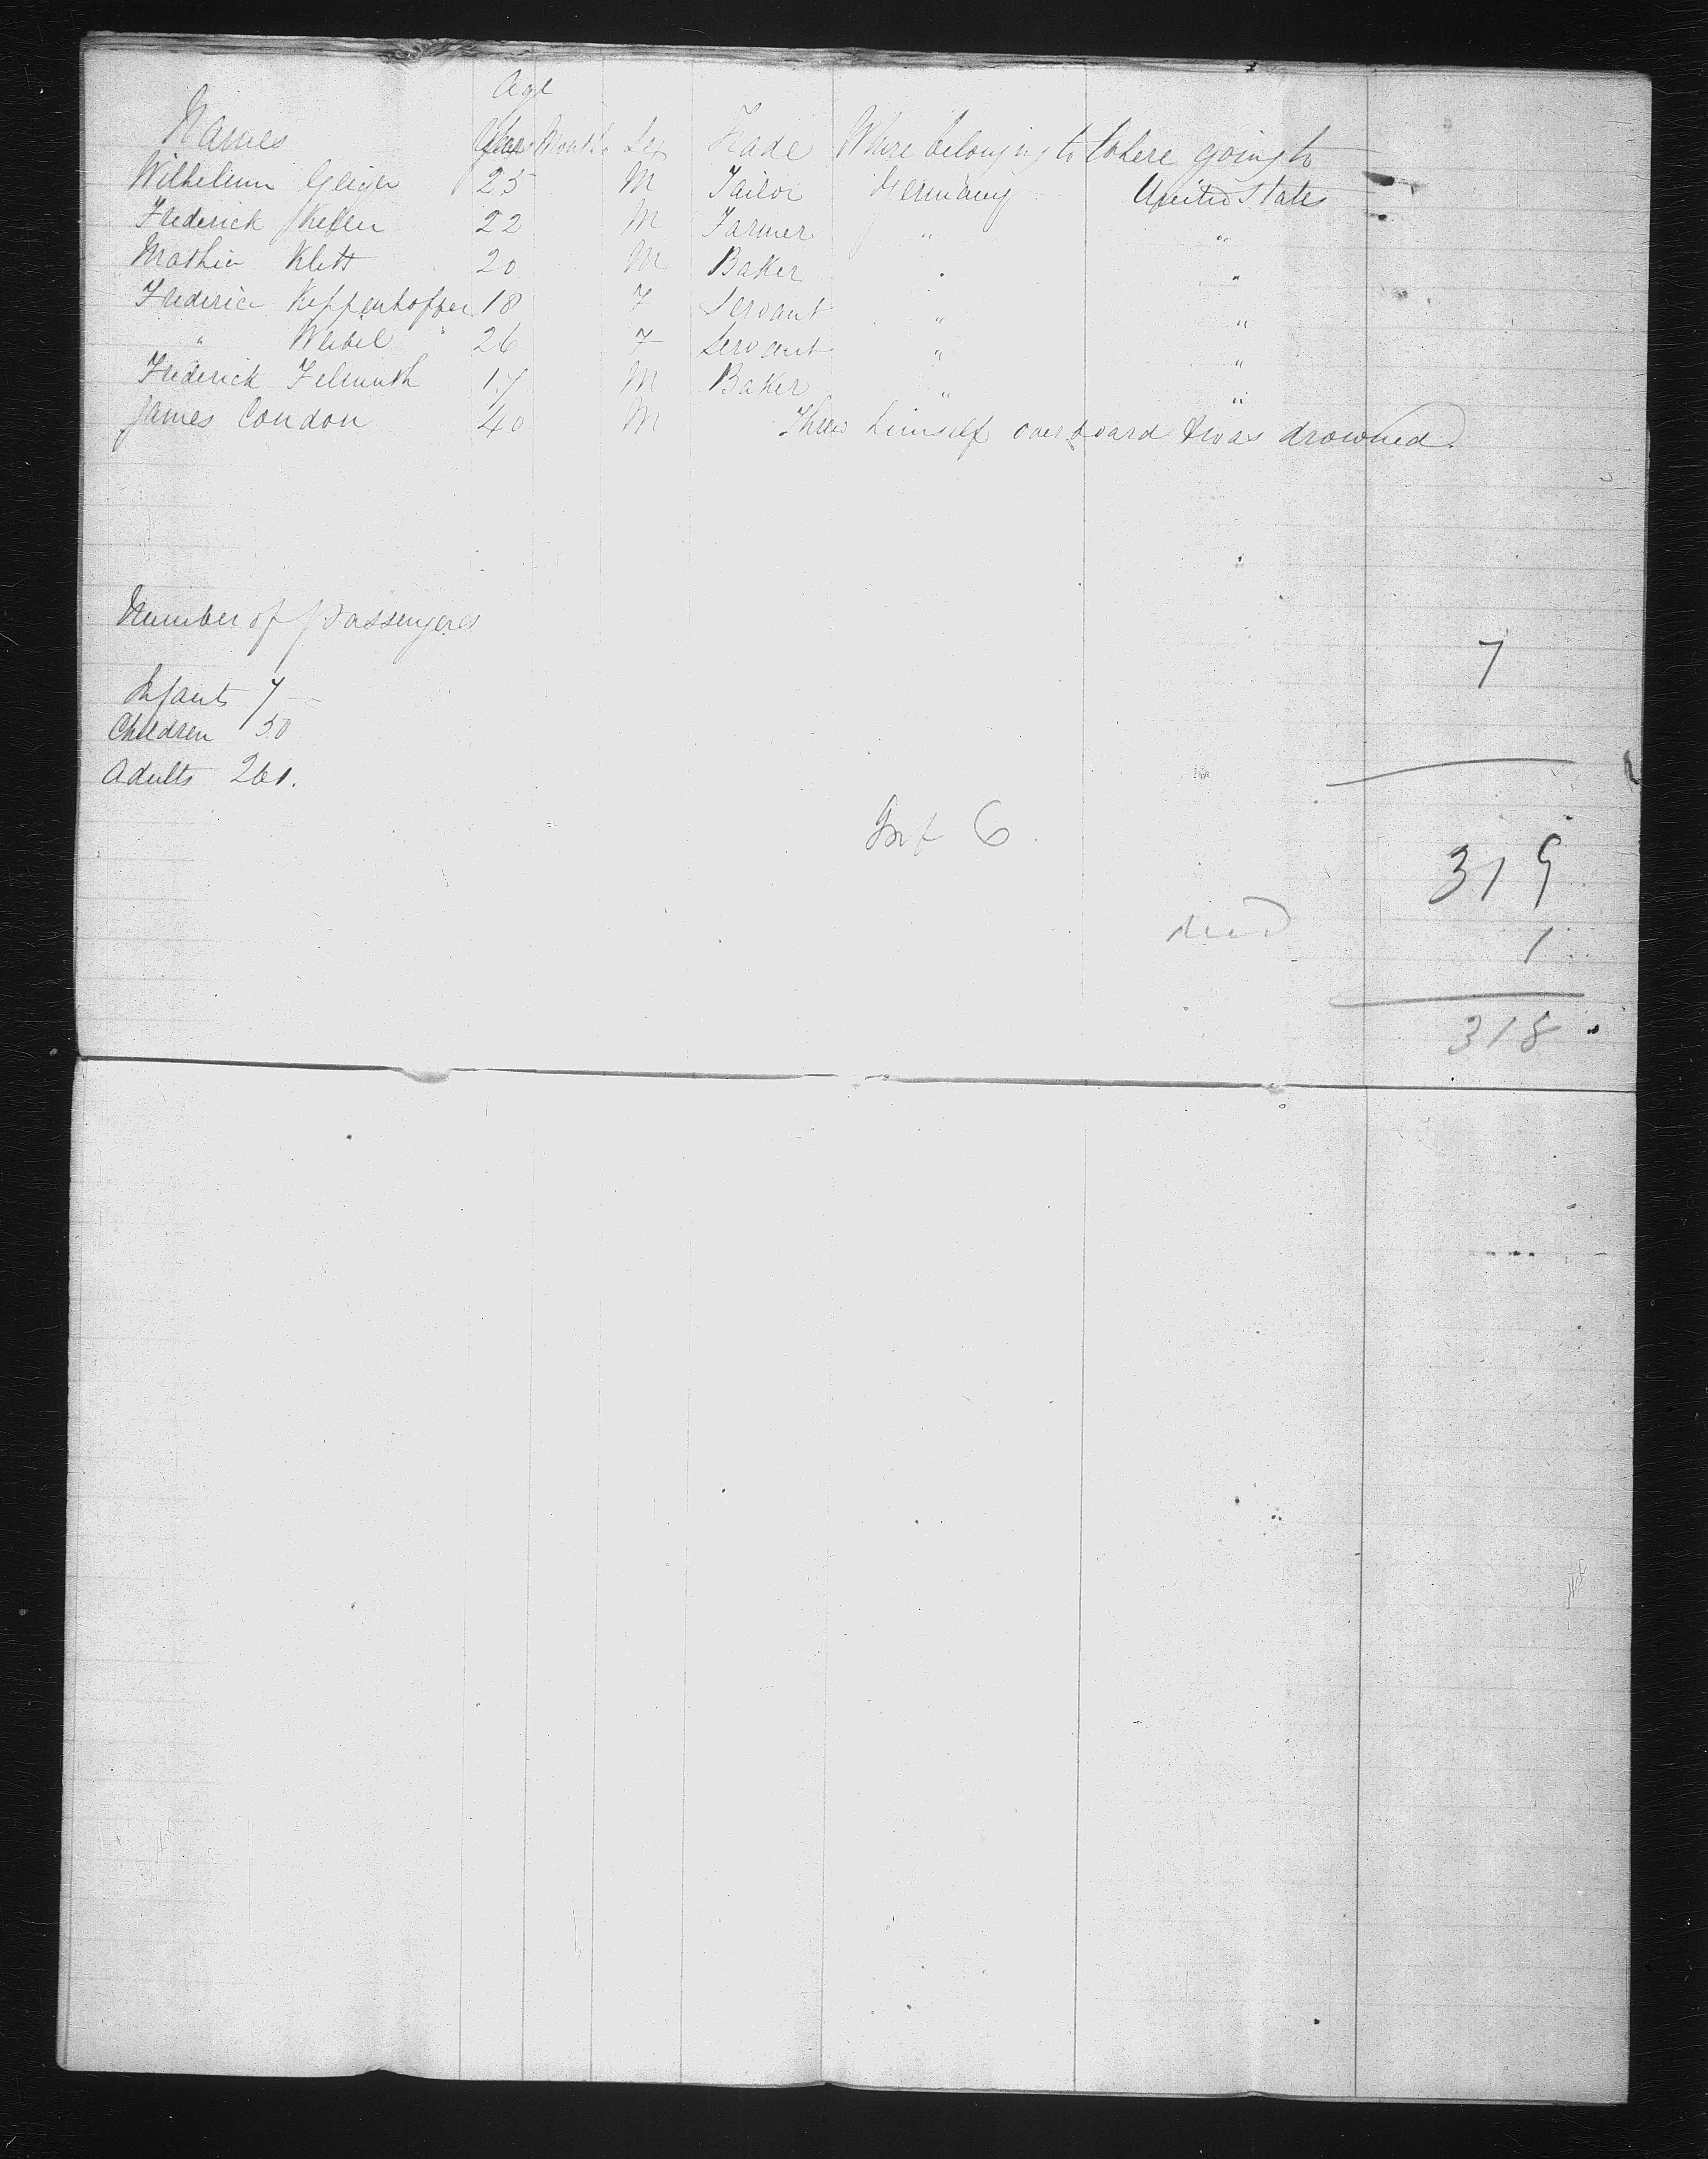 Age
Names Years Months Sex Trade Where belonging to Where going to
Wilhelum Geiger 25 M Tailor Germany United States
Frederick Keller 22 M Farmer " "
Mathia Klett 20 M Baker " "
Frederica Keppenhoffer 18 F Servant " "
" Weibel " 26 F Servant " "
Frederick Felmuth 17 M Baker " "
James Condon 40 M Threw himself overboard & was drowned.
Number of passengers
7
Infants 7
Children 50
Adults 261.
Inf 6
319
died 1
318